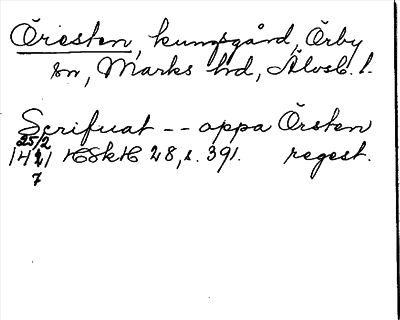 Öresten, kungsgård, Örby
sn, Marks hd, Älvsb. l.
Scrifuat -- oppa Örsten
25/2
1421 HSkH 28, s. 391. regest.
7